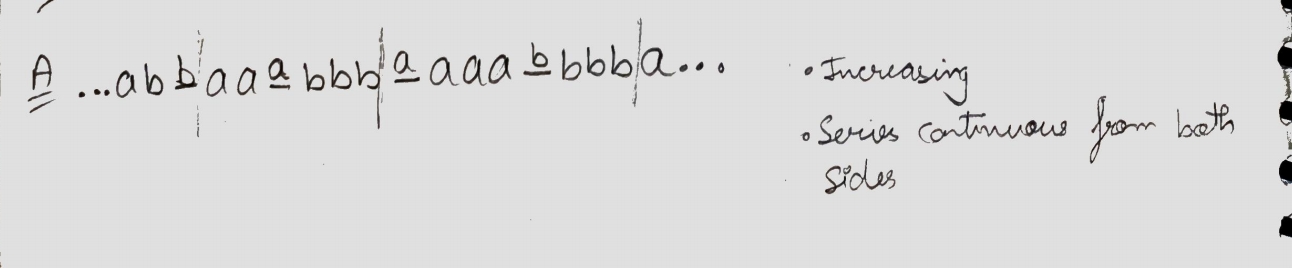 A ...abb|aaabbb|aaaabbbb|a...
• Increasing
• Series continuous from both
sides